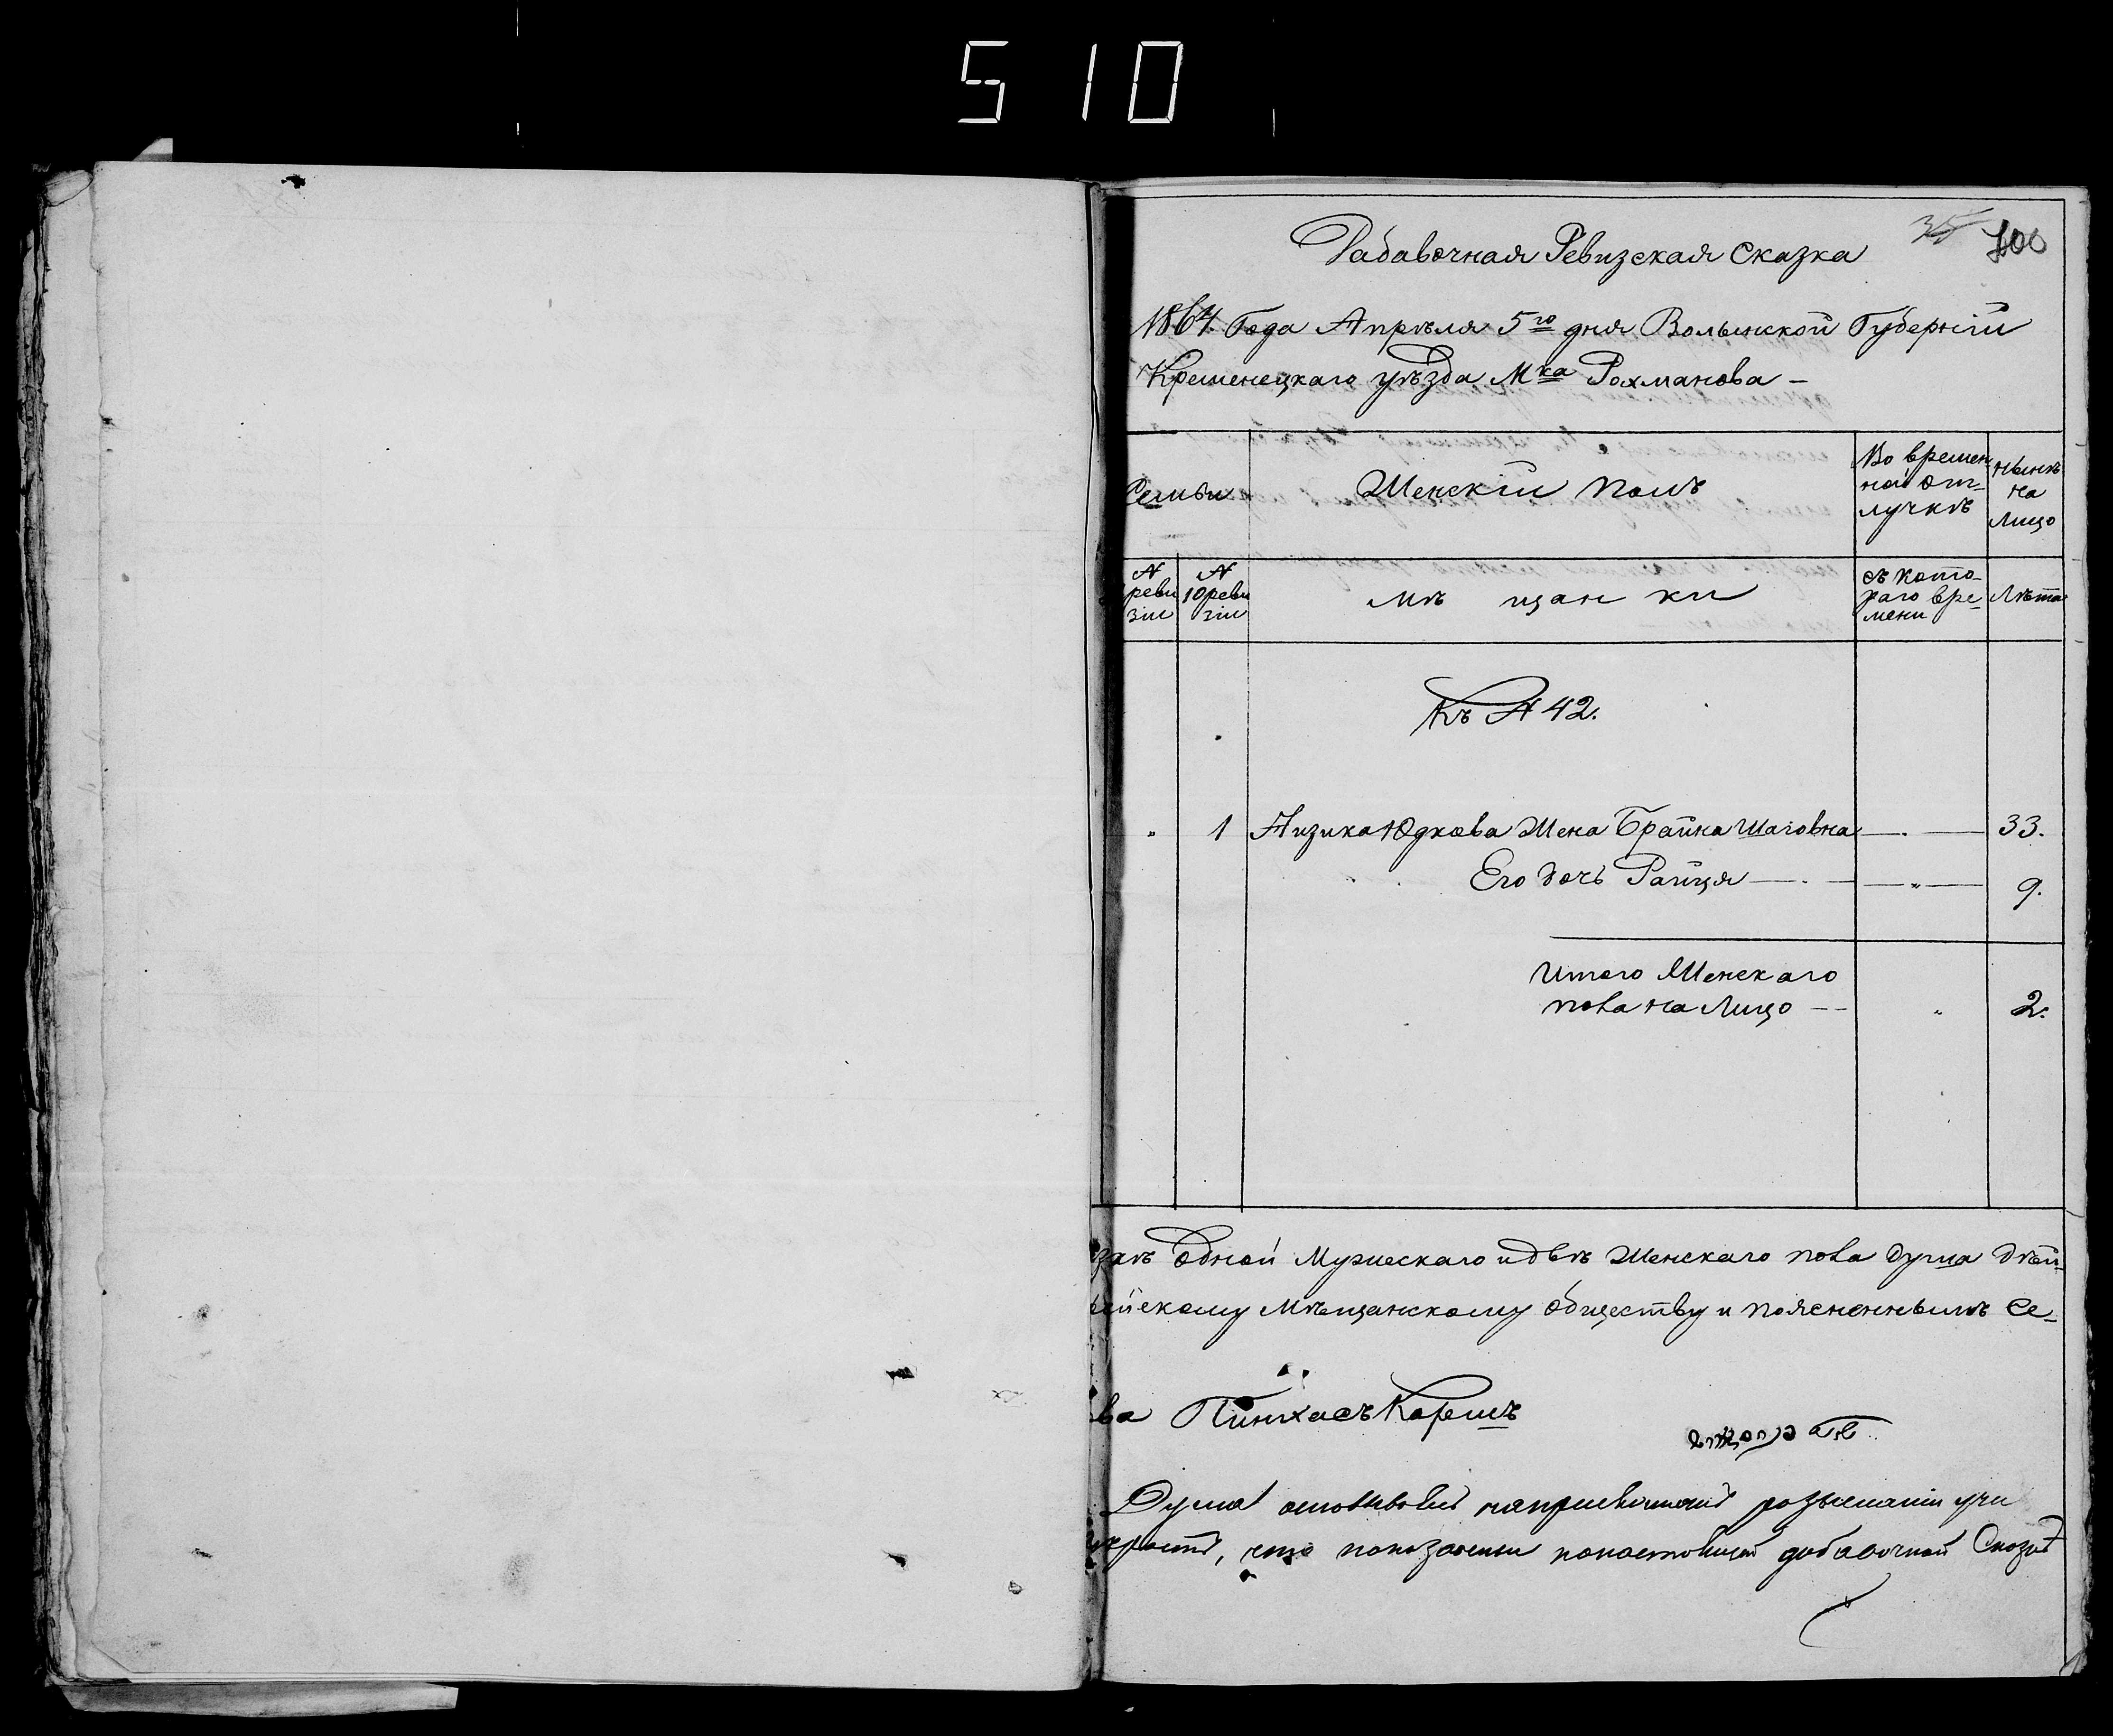 510
35 100
Дабавочная Ревизская Сказка
1864. Года Апрѣля 5го дня Волынской Губерніи
Кременецкаго уѣзда Мка Рохманова —
Семьи
Женскій полъ
Во времен
ной от-
лучкѣ
нынѣ
на
лицо
№
реви
зіи
№
10 реви
зіи
мѣ щан ки
съ кото-
раго вре-
мени
Лѣта
Къ № 42.
" 1 Айзика Юдкова Жена Брайна Шаговна — . — 33.
Его дочь Райця — . — — " — 9.
Итого Женскаго
пола на лицо — — " 2.
одной Мужескаго и двѣ Женскаго пола душа дѣй-
скому Мѣщанскому обществу и поясненнымъ Се-
ва Пинхасъ Корешъ
Дума
что добавочной Сказкѣ